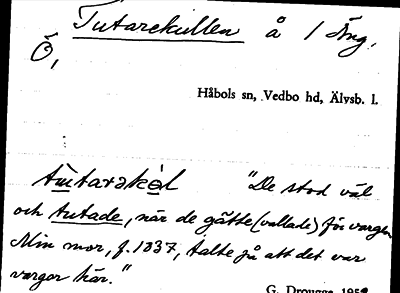 Tutarekullen å 1 Äng.
Ö,
Håbols sn, Vedbo hd, Älvsb. l.
tùtarəkəl "De stod väl
och tutade, når de gätte (vallade) för vargen.
Min mor, f. 1837, talte på att det var
vargar här."
G. Drougge 1959